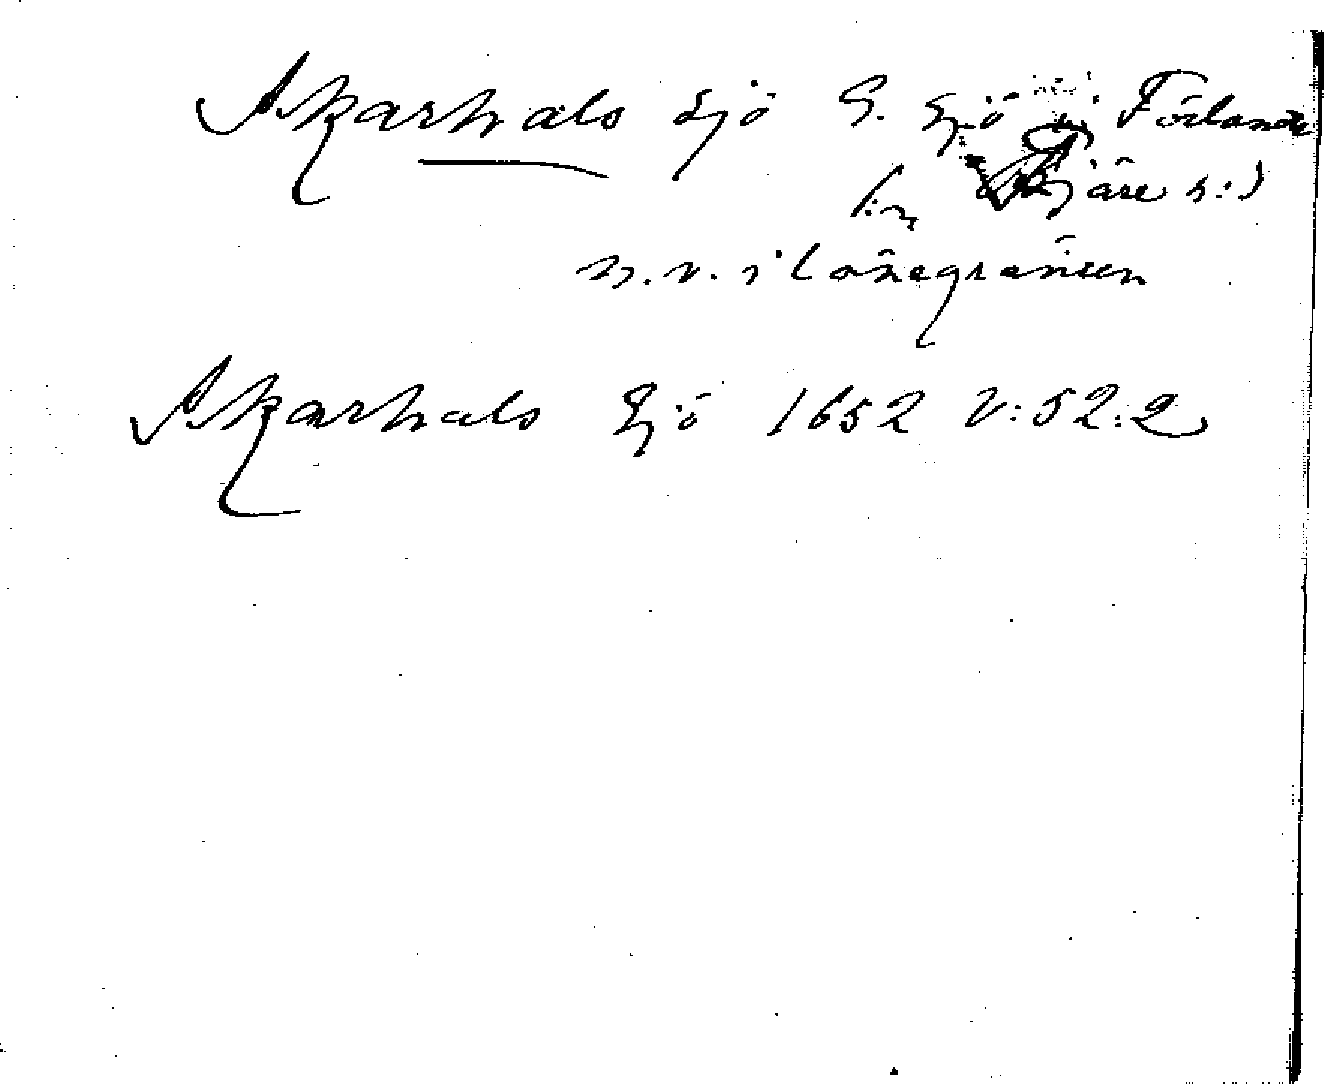 Skarhals sjö G. sjö i Förlanda
Skjäre s:)
n.v. i länsgränsen
Skarhals Sjö 1652 V:52:2